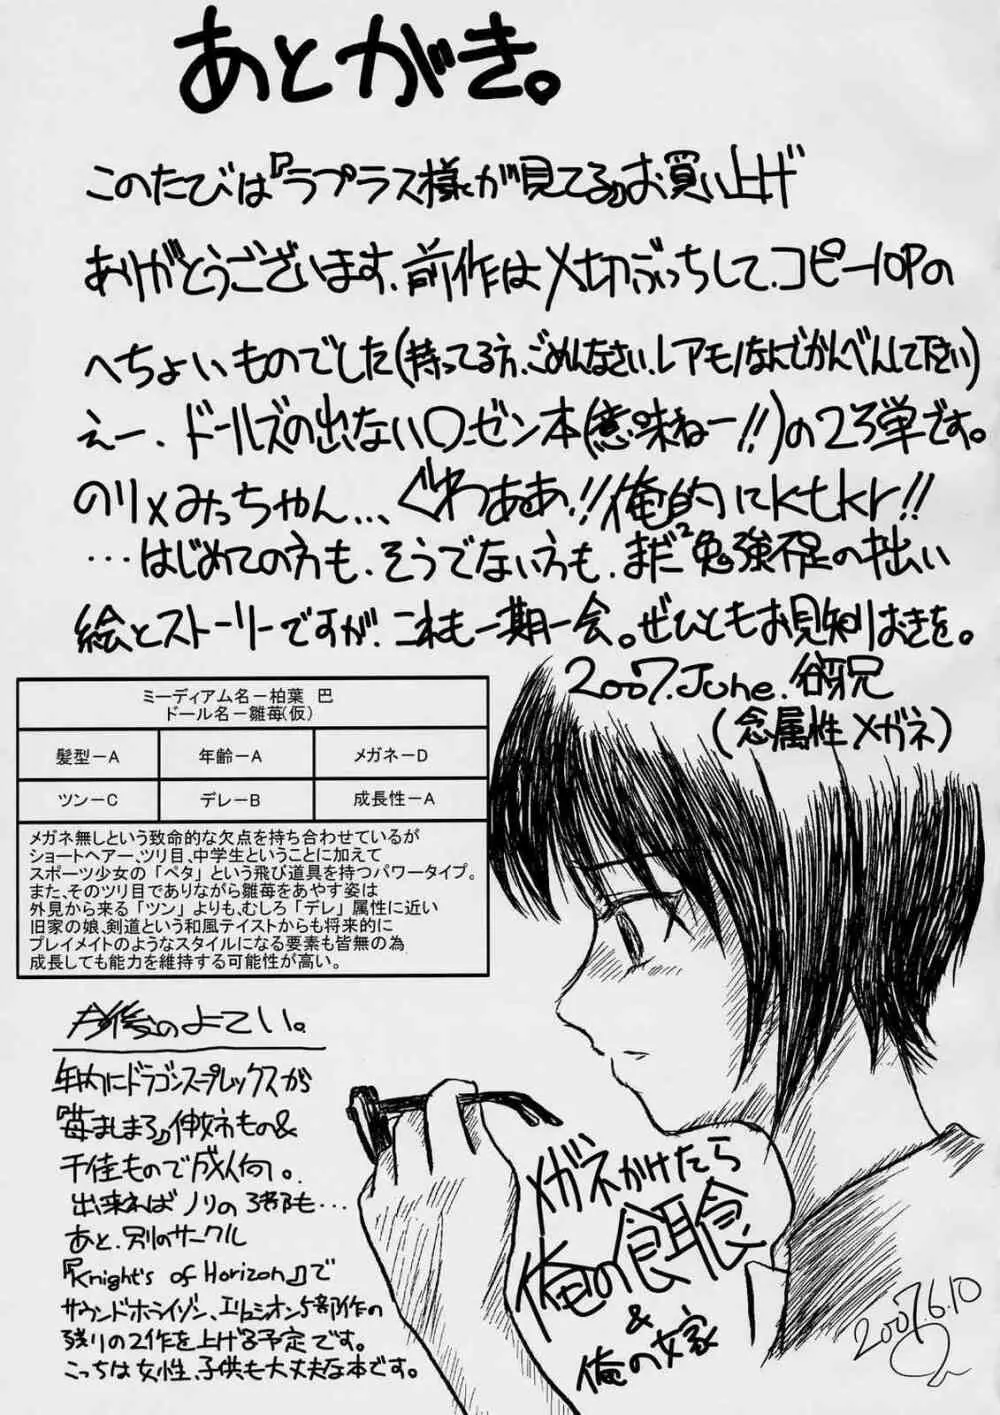 あとがき。
このたびは『ラプラス様が見てる』お買い上げ
ありがとうございます、前作は〆切ぶっちして、コピー10Pの
へちょいものでした(持ってる方、ごめんなさい、レアモノなんでかんべんして下さい)
えー、ドールズの出ないローゼン本(意味ねー!!)の2る弾です。
のりxみっちゃん…、ぐわぁぁ、!!俺的にktkr!!
…はじめての方も、そうでない方も、まだ²勉強不足の拙い
絵とストーリーですが、これも一期一会。ぜひともお見知りおきを。
2007.June.谷牙兄
(念属性メガネ)
ミーディアム名－柏葉 巴
ドール名－雛苺(仮)
髪型－A 年齢－A メガネ－D
ツン－C デレ－B 成長性－A
メガネ無しという致命的な欠点を持ち合わせているが
ショートヘアー、ツリ目、中学生ということに加えて
スポーツ少女の「ペタ」という飛び道具を持つパワータイプ。
また、そのツリ目でありながら雛苺をあやす姿は
外見から来る「ツン」よりも、むしろ「デレ」属性に近い
旧家の娘、剣道という和風テイストからも将来的に
プレイメイトのようなスタイルになる要素も皆無の為
成長しても能力を維持する可能性が高い。
今後のよてい。
年内にドラゴンスープレックスから
『苺ましまろ』伸枝本もの&
千佳もので成人向。
出来ればノリの3部も…
あと、別のサークル
『Knight's of Horizon』で
サウンドホライゾン、エリュシオン5部作の
残りの2作を上げる予定です。
こっちは女性、子供も大丈夫な本です。
メガネかけたら
俺の餌食
&
俺の嫁
2007.6.10